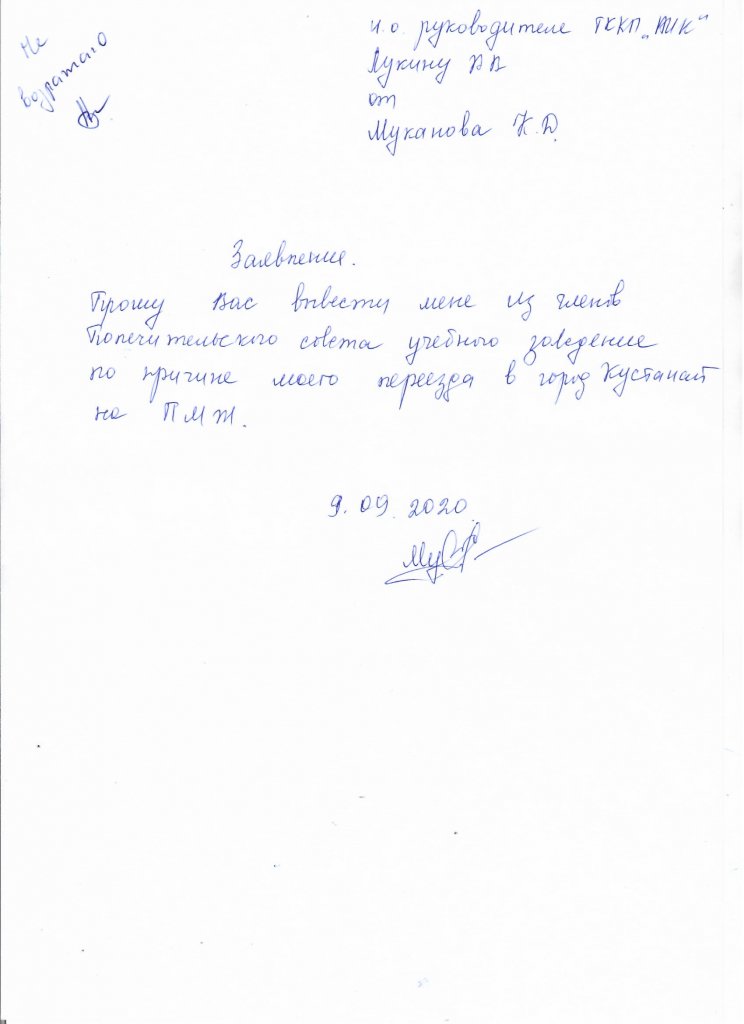 Не
возражаю
и.о. руководителе ГККП
Лукину
от
Муканова К.Д.
Заявление.
Прошу Вас вывести мене из членов
Попечительского совета учебного заведение
по причине моего переезда в город Кустанай
на ПМЖ.
9.09.2020